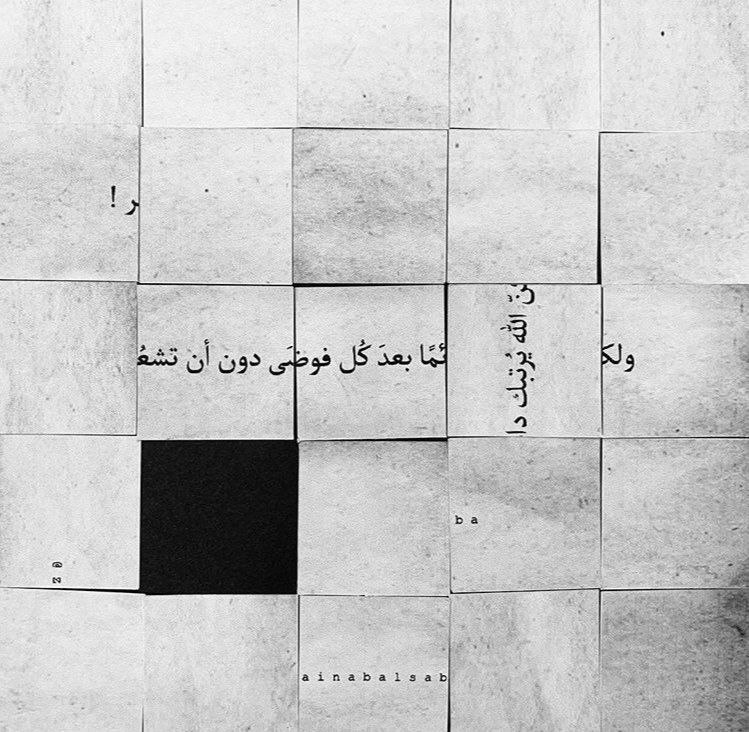 ر !
ولكنّ الله يُرتبك دائمًا بعدَ كُل فوضَى دون أن تشعُ
b a
@ z
a i n a b a l s a b